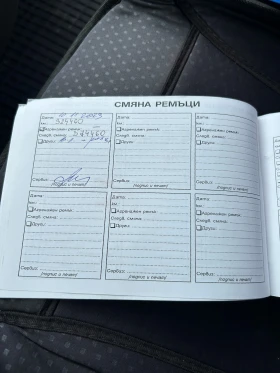 СМЯНА РЕМЪЦИ
Дата:
км: 324460
Ангренажен ремък
Следв. смяна: 384460
Други:
Сервиз:
/подпис и печат/
Дата:
км:
Ангренажен ремък:
Следв. смяна:
Други:
Сервиз:
/подпис и печат/
Дата:
км:
Ангренажен ремък:
Следв. смяна:
Други:
Сервиз:
/подпис и печат/
Дата:
км:
Ангренажен ремък:
Следв. смяна:
Други:
Сервиз:
/подпис и печат/
Дата:
км:
Ангренажен ремък:
Следв. смяна:
Други:
Сервиз:
/подпис и печат/
Дата:
км:
Ангренажен ремък:
Следв. смяна:
Други:
Сервиз:
/подпис и печат/